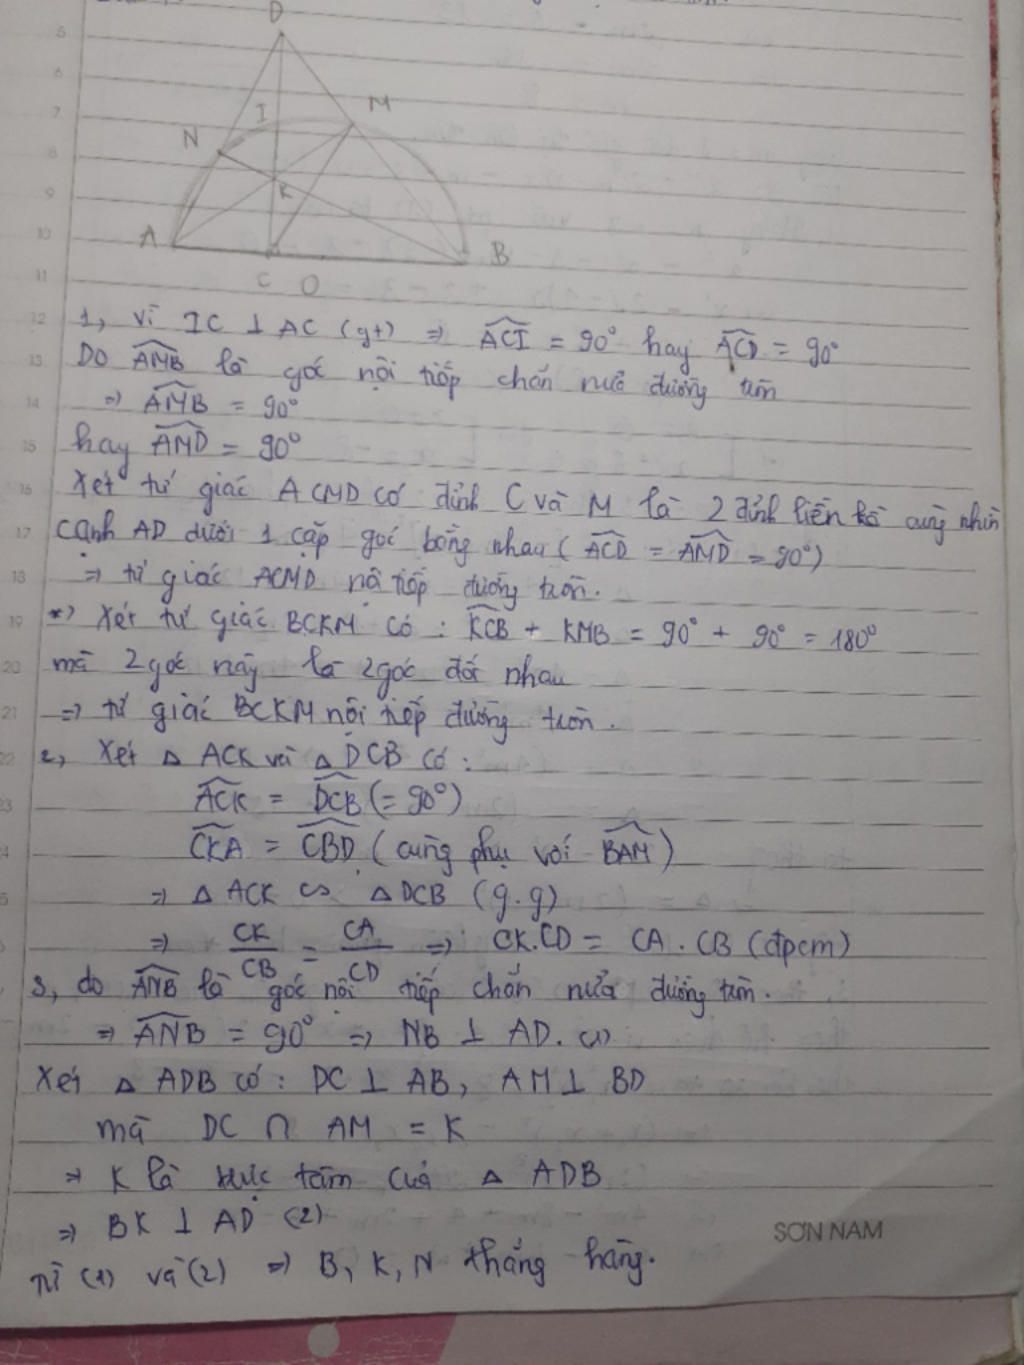 D
I
M
N
K
A
B
C O
1, Vì IC ⊥ AC (gt) ⇒ ACI = 90° hay ACD = 90°
Do AMB là góc nội tiếp chắn nửa đường tròn
⇒ AMB = 90°
hay AMD = 90°
Xét tứ giác ACMD có đỉnh C và M là 2 đỉnh liền kề cùng nhìn
cạnh AD dưới 1 cặp góc bằng nhau (ACD = AMD = 90°)
⇒ tứ giác ACMD nội tiếp đường tròn.
*) Xét tứ giác BCKM có: KCB + KMB = 90° + 90° = 180°
mà 2 góc này là 2 góc đối nhau
⇒ tứ giác BCKM nội tiếp đường tròn.
2, Xét △ ACK và △ DCB có:
ACK = DCB (= 90°)
CKA = CBD (cùng phụ với BAM)
⇒ △ ACK ∽ △ DCB (g.g)
⇒ CK/CB = CA/CD ⇒ CK.CD = CA.CB (đpcm)
3, do ANB là góc nội tiếp chắn nửa đường tròn.
⇒ ANB = 90° ⇒ NB ⊥ AD. (1)
Xét △ ADB có: DC ⊥ AB, AM ⊥ BD
mà DC ∩ AM = K
⇒ K là trực tâm của △ ADB
⇒ BK ⊥ AD (2)
SƠN NAM
Từ (1) và (2) ⇒ B, K, N thẳng hàng.
5
6
7
8
9
10
11
12
13
14
15
16
17
18
19
20
21
22